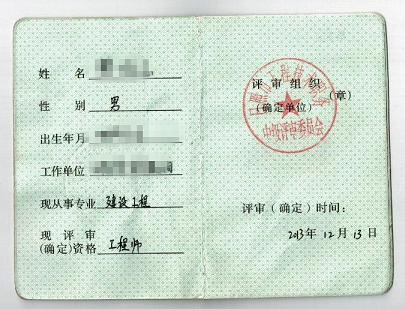 姓 名
性 别 男
出生年月
工作单位 司
现从事专业 建设工程
现 评 审
(确定)资格 工程师
评 审 组 织
(确定单位)
(章)
工程技术
中级评审委员会
评审（确定）时间：
2013年 12月 13日